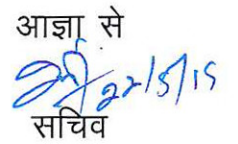 आज्ञा से
22/5/19
सचिव